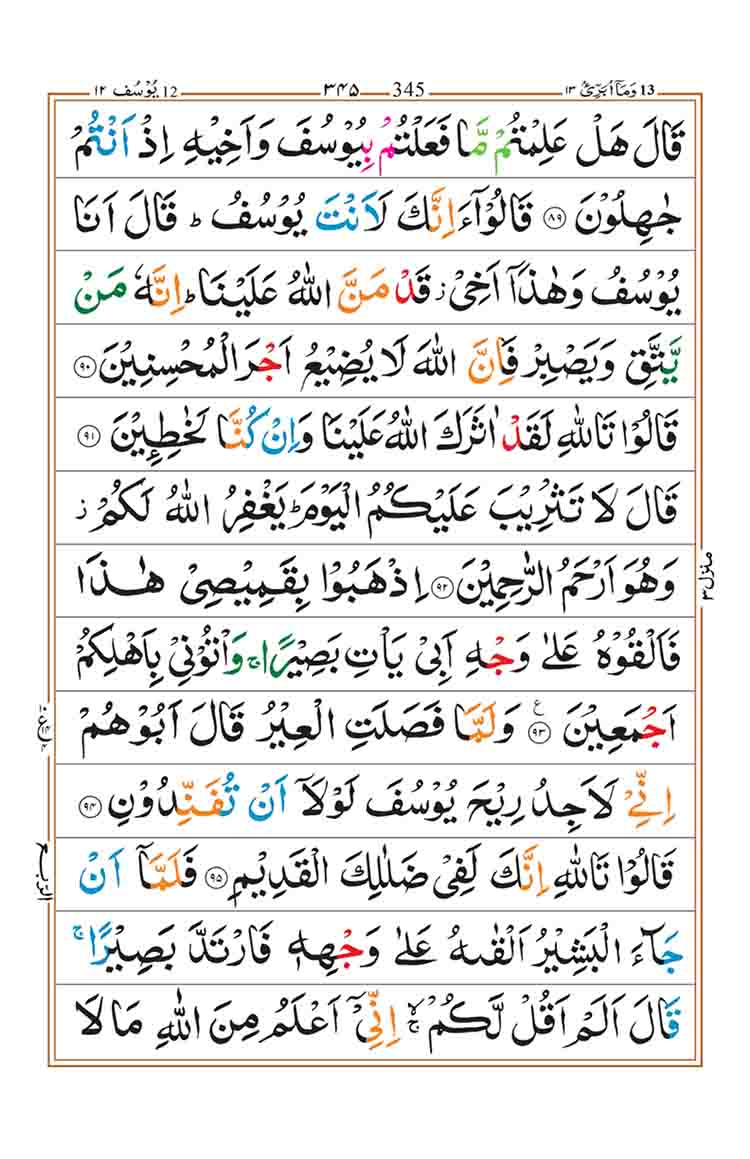 13 وَمَاۤ اُبَرِّئُ ۱۳ 345 ۳۴۵ 12 يُوْسُف ۱۲
قَالَ هَلْ عَلِمْتُمْ مَّا فَعَلْتُمْ بِيُوْسُفَ وَاَخِيْهِ اِذْ اَنْتُمْ
جٰهِلُوْنَ ۸۹ قَالُوْٓا ءَاِنَّكَ لَاَنْتَ يُوْسُفُ ؕ قَالَ اَنَا
يُوْسُفُ وَهٰذَاۤ اَخِىْ ز قَدْ مَنَّ اللّٰهُ عَلَيْنَا ؕ اِنَّهٗ مَنْ
يَّتَّقِ وَيَصْبِرْ فَاِنَّ اللّٰهَ لَا يُضِيْعُ اَجْرَ الْمُحْسِنِيْنَ ۹۰
قَالُوْا تَاللّٰهِ لَقَدْ اٰثَرَكَ اللّٰهُ عَلَيْنَا وَاِنْ كُنَّا لَخٰطِـِٕيْنَ ۹۱
قَالَ لَا تَثْرِيْبَ عَلَيْكُمُ الْيَوْمَ ؕ يَغْفِرُ اللّٰهُ لَكُمْ ز
وَهُوَ اَرْحَمُ الرّٰحِمِيْنَ ۹۲ اِذْهَبُوْا بِقَمِيْصِىْ هٰذَا
فَاَلْقُوْهُ عَلٰى وَجْهِ اَبِىْ يَاْتِ بَصِيْرًا ۚ وَاْتُوْنِىْ بِاَهْلِكُمْ
اَجْمَعِيْنَ ۹۳ ع وَلَمَّا فَصَلَتِ الْعِيْرُ قَالَ اَبُوْهُمْ
اِنِّىْ لَاَجِدُ رِيْحَ يُوْسُفَ لَوْلَاۤ اَنْ تُفَنِّدُوْنِ ۹۴
قَالُوْا تَاللّٰهِ اِنَّكَ لَفِىْ ضَلٰلِكَ الْقَدِيْمِ ۹۵ فَلَمَّاۤ اَنْ
جَآءَ الْبَشِيْرُ اَلْقٰىهُ عَلٰى وَجْهِهٖ فَارْتَدَّ بَصِيْرًا ۚ
قَالَ اَلَمْ اَقُلْ لَّكُمْ ۙۚ اِنِّىْۤ اَعْلَمُ مِنَ اللّٰهِ مَا لَا
منزل ۳
الربع